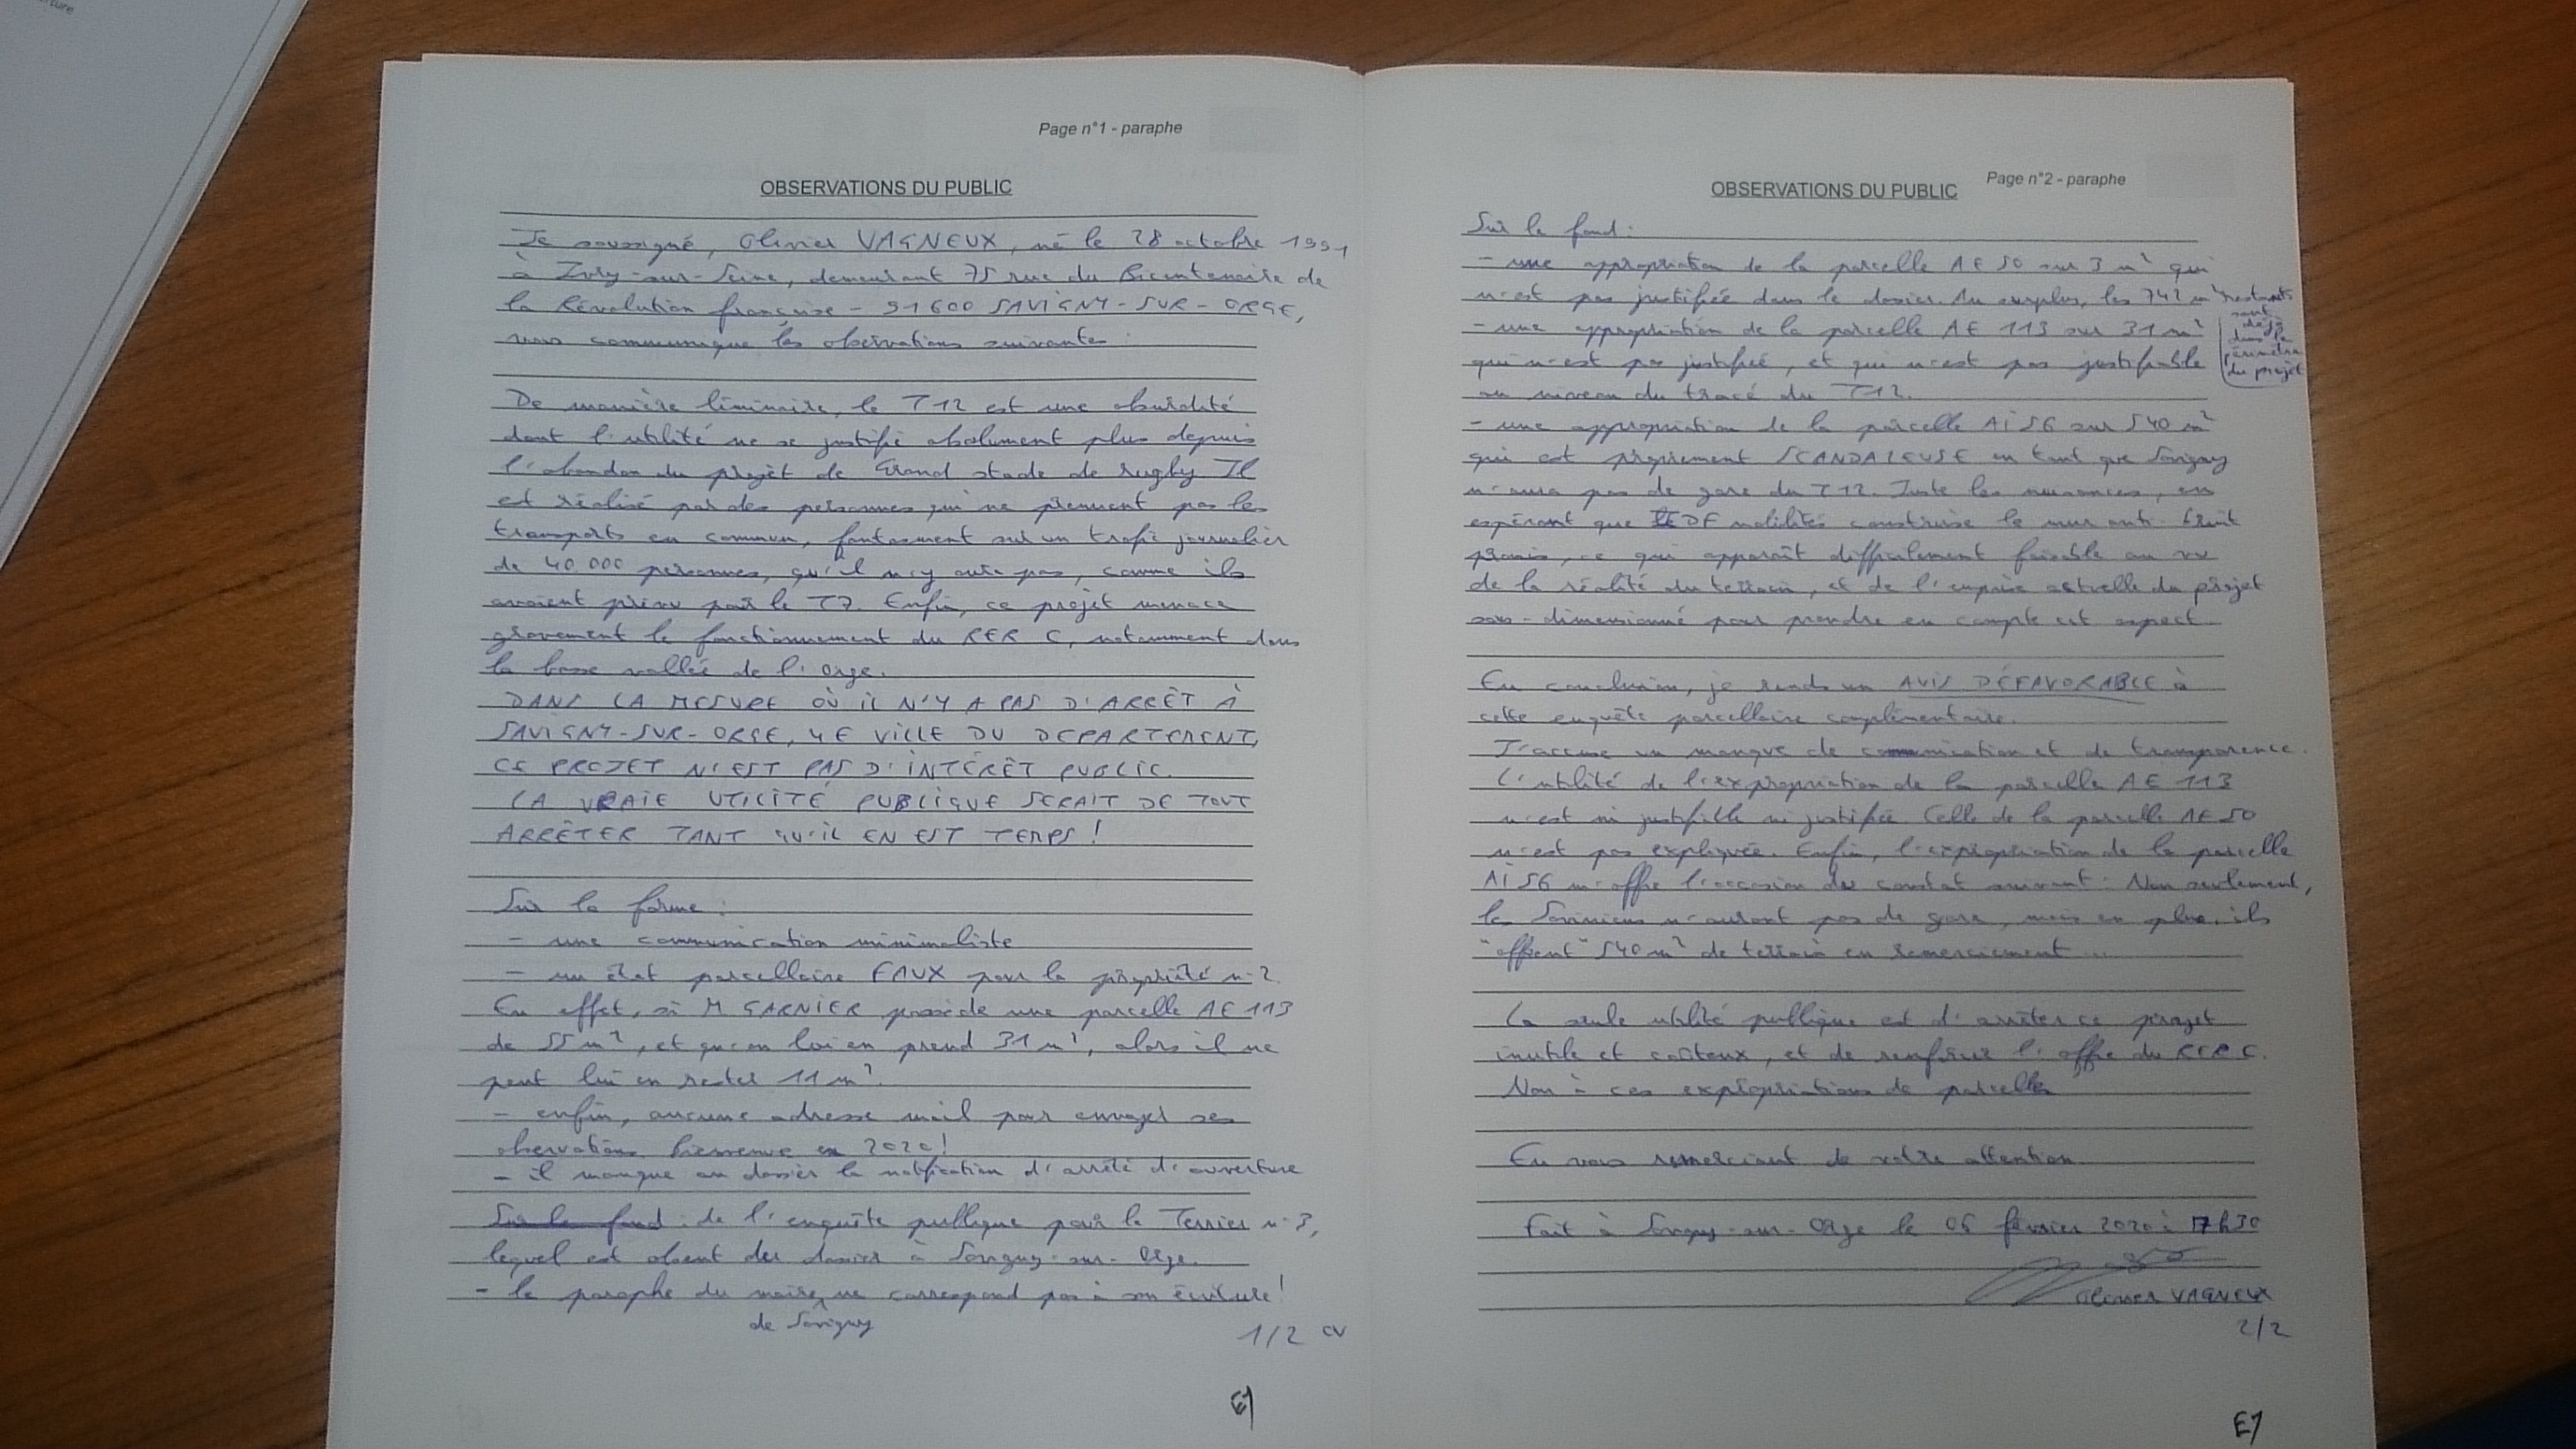 ture
Page n°1 - paraphe
OBSERVATIONS DU PUBLIC
Je soussigné, Olivier VAGNEUX, né le 28 octobre 1991
à Ivry-sur-Seine, demeurant 75 rue du Bicentenaire de
la Révolution française - 91600 SAVIGNY-SUR-ORGE,
vous communique les observations suivantes :
De manière liminaire, le T12 est une absurdité
dont l'utilité ne se justifie absolument plus depuis
l'abandon du projet de Grand stade de rugby. Il
est réalisé par des personnes qui ne prennent pas les
transports en commun, fantasment sur un trafic journalier
de 40.000 personnes, qu'il n'y aura pas, comme ils
avaient prévu pour le T7. Enfin, ce projet menace
gravement le fonctionnement du RER C, notamment dans
la basse vallée de l'Orge.
DANS LA MESURE OÙ IL N'Y A PAS D'ARRÊT À
SAVIGNY-SUR-ORGE, 4E VILLE DU DEPARTEMENT,
CE PROJET N'EST PAS D'INTÉRÊT PUBLIC.
LA VRAIE UTILITÉ PUBLIQUE SERAIT DE TOUT
ARRÊTER TANT QU'IL EN EST TEMPS !
Sur la forme :
- une communication minimaliste
- un état parcellaire FAUX pour la propriété n°2.
En effet, si M. GARNIER possède une parcelle AE 113
de 55 m², et qu'on lui en prend 31 m², alors il ne
peut lui en rester 11 m².
- enfin, aucune adresse mail pour envoyer ses
observations. Bienvenue en 2020 !
- il manque au dossier la notification d'arrêté d'ouverture
Sur le fond : de l'enquête publique pour le Terrier n°3,
lequel est absent du dossier à Savigny-sur-Orge.
- le paraphe du maire ne correspond pas à son écriture !
de Savigny
1/2 OV
E1
Page n°2 - paraphe
OBSERVATIONS DU PUBLIC
Sur le fond :
- une appropriation de la parcelle AE 50 sur 3 m² qui
n'est pas justifiée dans le dossier. Au surplus, les 742 m² restants
sont
déjà
dans le
périmètre
du projet
- une appropriation de la parcelle AE 113 sur 31 m²
qui n'est pas justifiée, et qui n'est pas justifiable
au niveau du tracé du T12.
- une appropriation de la parcelle AI 56 sur 540 m²
qui est proprement SCANDALEUSE en tant que Savigny
n'aura pas de gare du T12. Juste les nuisances, en
espérant que IDF mobilités construise le mur anti-bruit
promis, ce qui apparaît difficilement faisable au vu
de la réalité du terrain, et de l'emprise actuelle du projet
sous-dimensionné pour prendre en compte cet aspect.
En conclusion, je rends un AVIS DÉFAVORABLE à
cette enquête parcellaire complémentaire.
J'accuse un manque de communication et de transparence.
L'utilité de l'expropriation de la parcelle AE 113
n'est ni justifiable ni justifiée. Celle de la parcelle AE 50
n'est pas expliquée. Enfin, l'expropriation de la parcelle
AI 56 m'offre l'occasion du constat suivant : Non seulement,
les Saviniens n'auront pas de gare, mais en plus, ils
"offrent" 540 m² de terrain en remerciement ...
La seule utilité publique est d'arrêter ce projet
inutile et coûteux, et de renforcer l'offre du RER C.
Non à ces expropriations de parcelles
En vous remerciant de votre attention.
Fait à Savigny-sur-Orge le 06 février 2020 à 17h30
Olivier VAGNEUX
2/2
E1